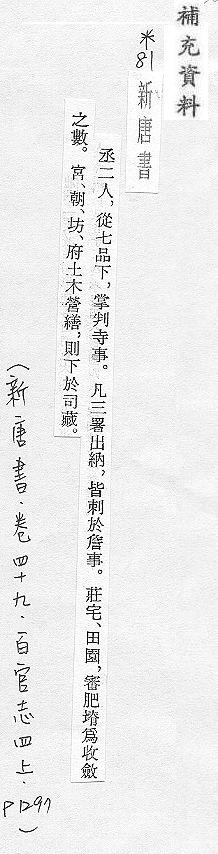 補充資料
*81 新唐書
丞二人，從七品下，掌判寺事。凡三署出納，皆刺於詹事。莊宅、田園，審肥塉爲收斂
之數。宮、朝、坊、府土木營繕，則下於司藏。
（新唐書．卷四十九．百官志四上．P1297）